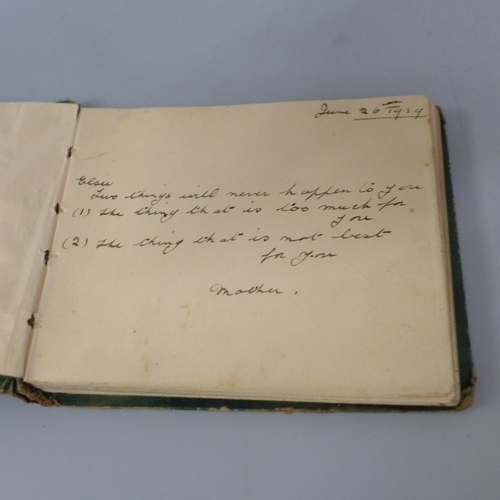 June 26th 1929
Elsie
Two things will never happen to you
(1) the thing that is too much for
you
(2) the thing that is not best
for you
Mother.